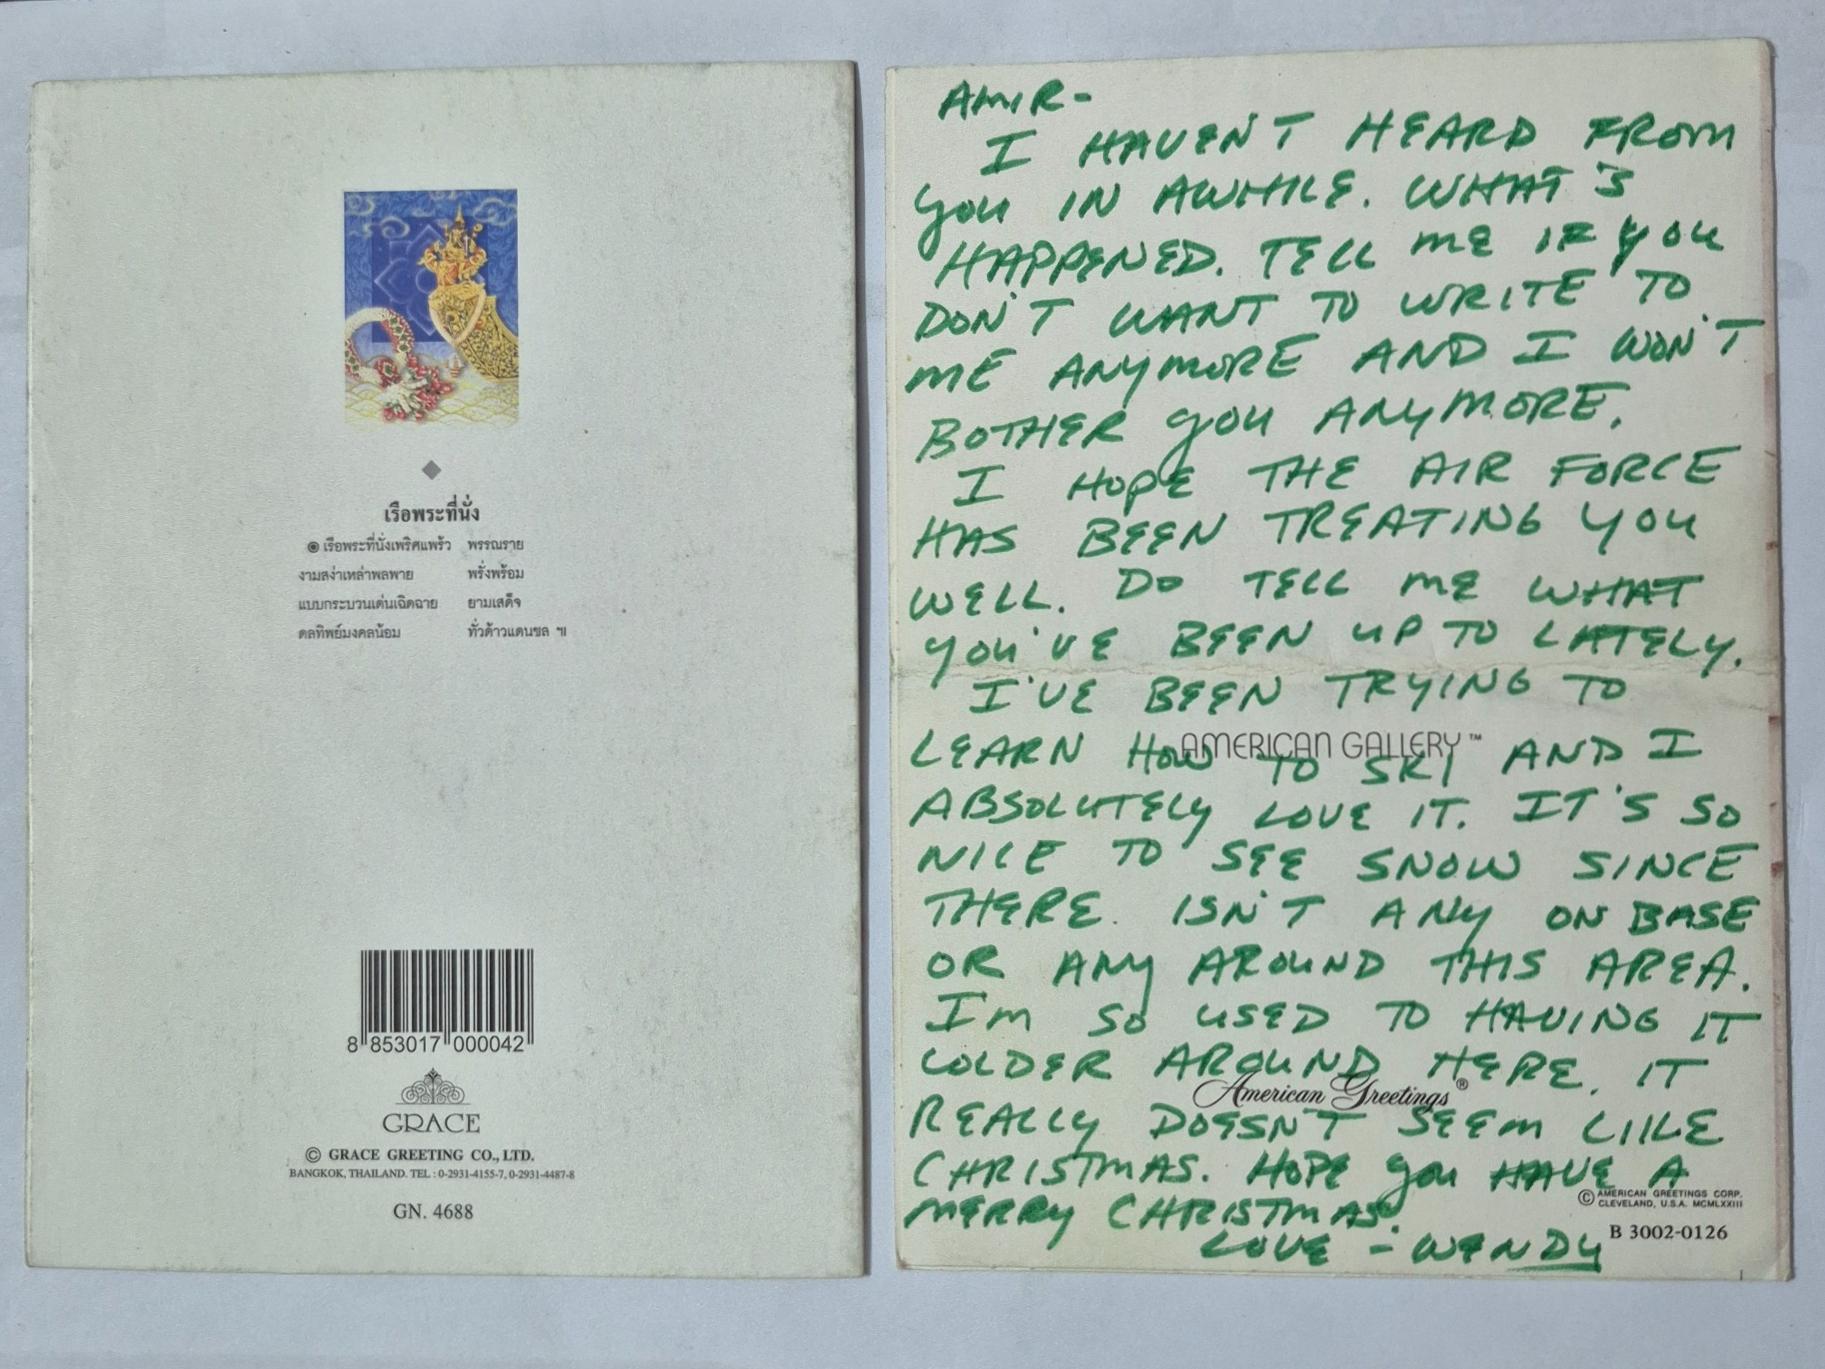 เรือพระที่นั่ง
๏ เรือพระที่นั่งเพริศแพร้ว พรรณราย
งามสง่าเหล่าพลพาย พรั่งพร้อม
แบบกระบวนเด่นเฉิดฉาย ยามเสด็จ
ดลทิพย์มงคลน้อม ทั่วด้าวแดนชล ฯ
8 853017 000042
GRACE
© GRACE GREETING CO., LTD.
BANGKOK, THAILAND. TEL : 0-2931-4155-7, 0-2931-4487-8
GN. 4688
AMIR-
I HAVEN'T HEARD FROM
YOU IN AWHILE. WHAT'S
HAPPENED. TELL ME IF YOU
DON'T WANT TO WRITE TO
ME ANYMORE AND I WON'T
BOTHER YOU ANYMORE.
I HOPE THE AIR FORCE
HAS BEEN TREATING YOU
WELL. DO TELL ME WHAT
YOU'VE BEEN UP TO LATELY.
I'VE BEEN TRYING TO
LEARN HOW TO SKI AND I
AMERICAN GALLERY™
ABSOLUTELY LOVE IT. IT'S SO
NICE TO SEE SNOW SINCE
THERE ISN'T ANY ON BASE
OR ANY AROUND THIS AREA.
I'M SO USED TO HAVING IT
COLDER AROUND HERE. IT
American Greetings®
REALLY DOESN'T SEEM LIKE
CHRISTMAS. HOPE YOU HAVE A
MERRY CHRISTMAS.
LOVE - WENDY
© AMERICAN GREETINGS CORP.
CLEVELAND, U.S.A. MCMLXXIII
B 3002-0126